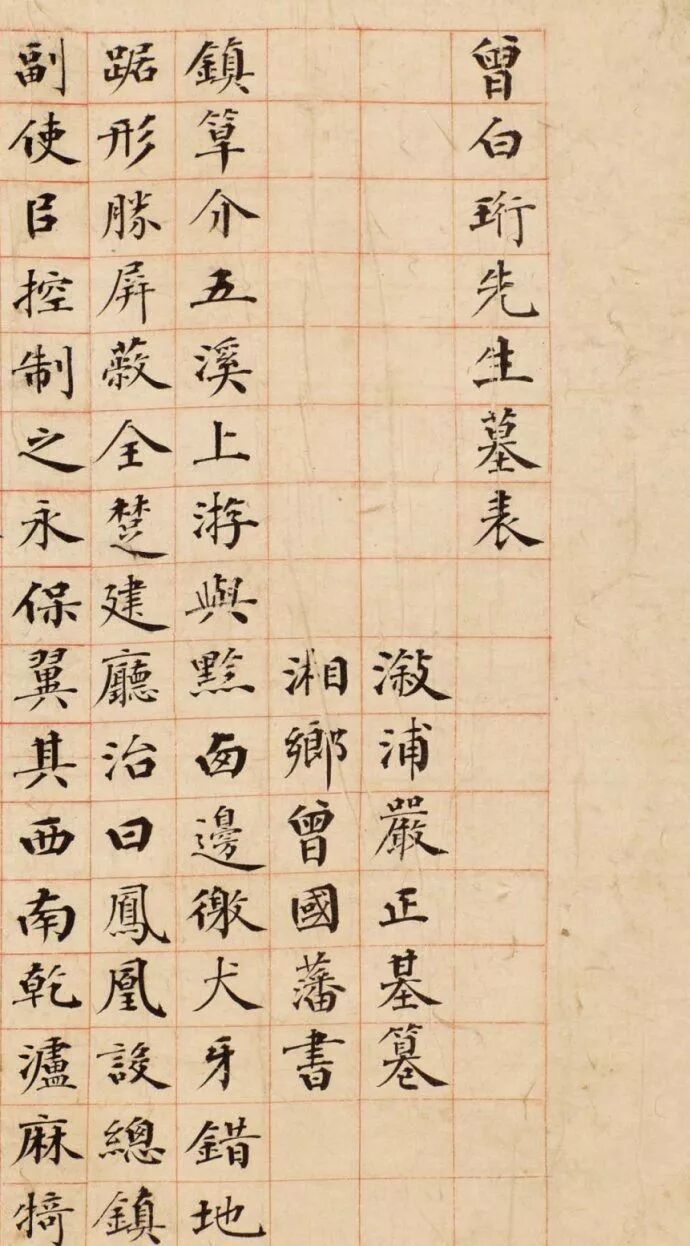 曾白珩先生墓表
漵浦嚴正基篹
湘鄉曾國藩書
鎮筸介五溪上游與黔邊徼犬牙錯地
踞形勝屏蔽全楚建廳治曰鳳凰設總鎮
副使㠯控制之永保翼其西南乾瀘麻犄